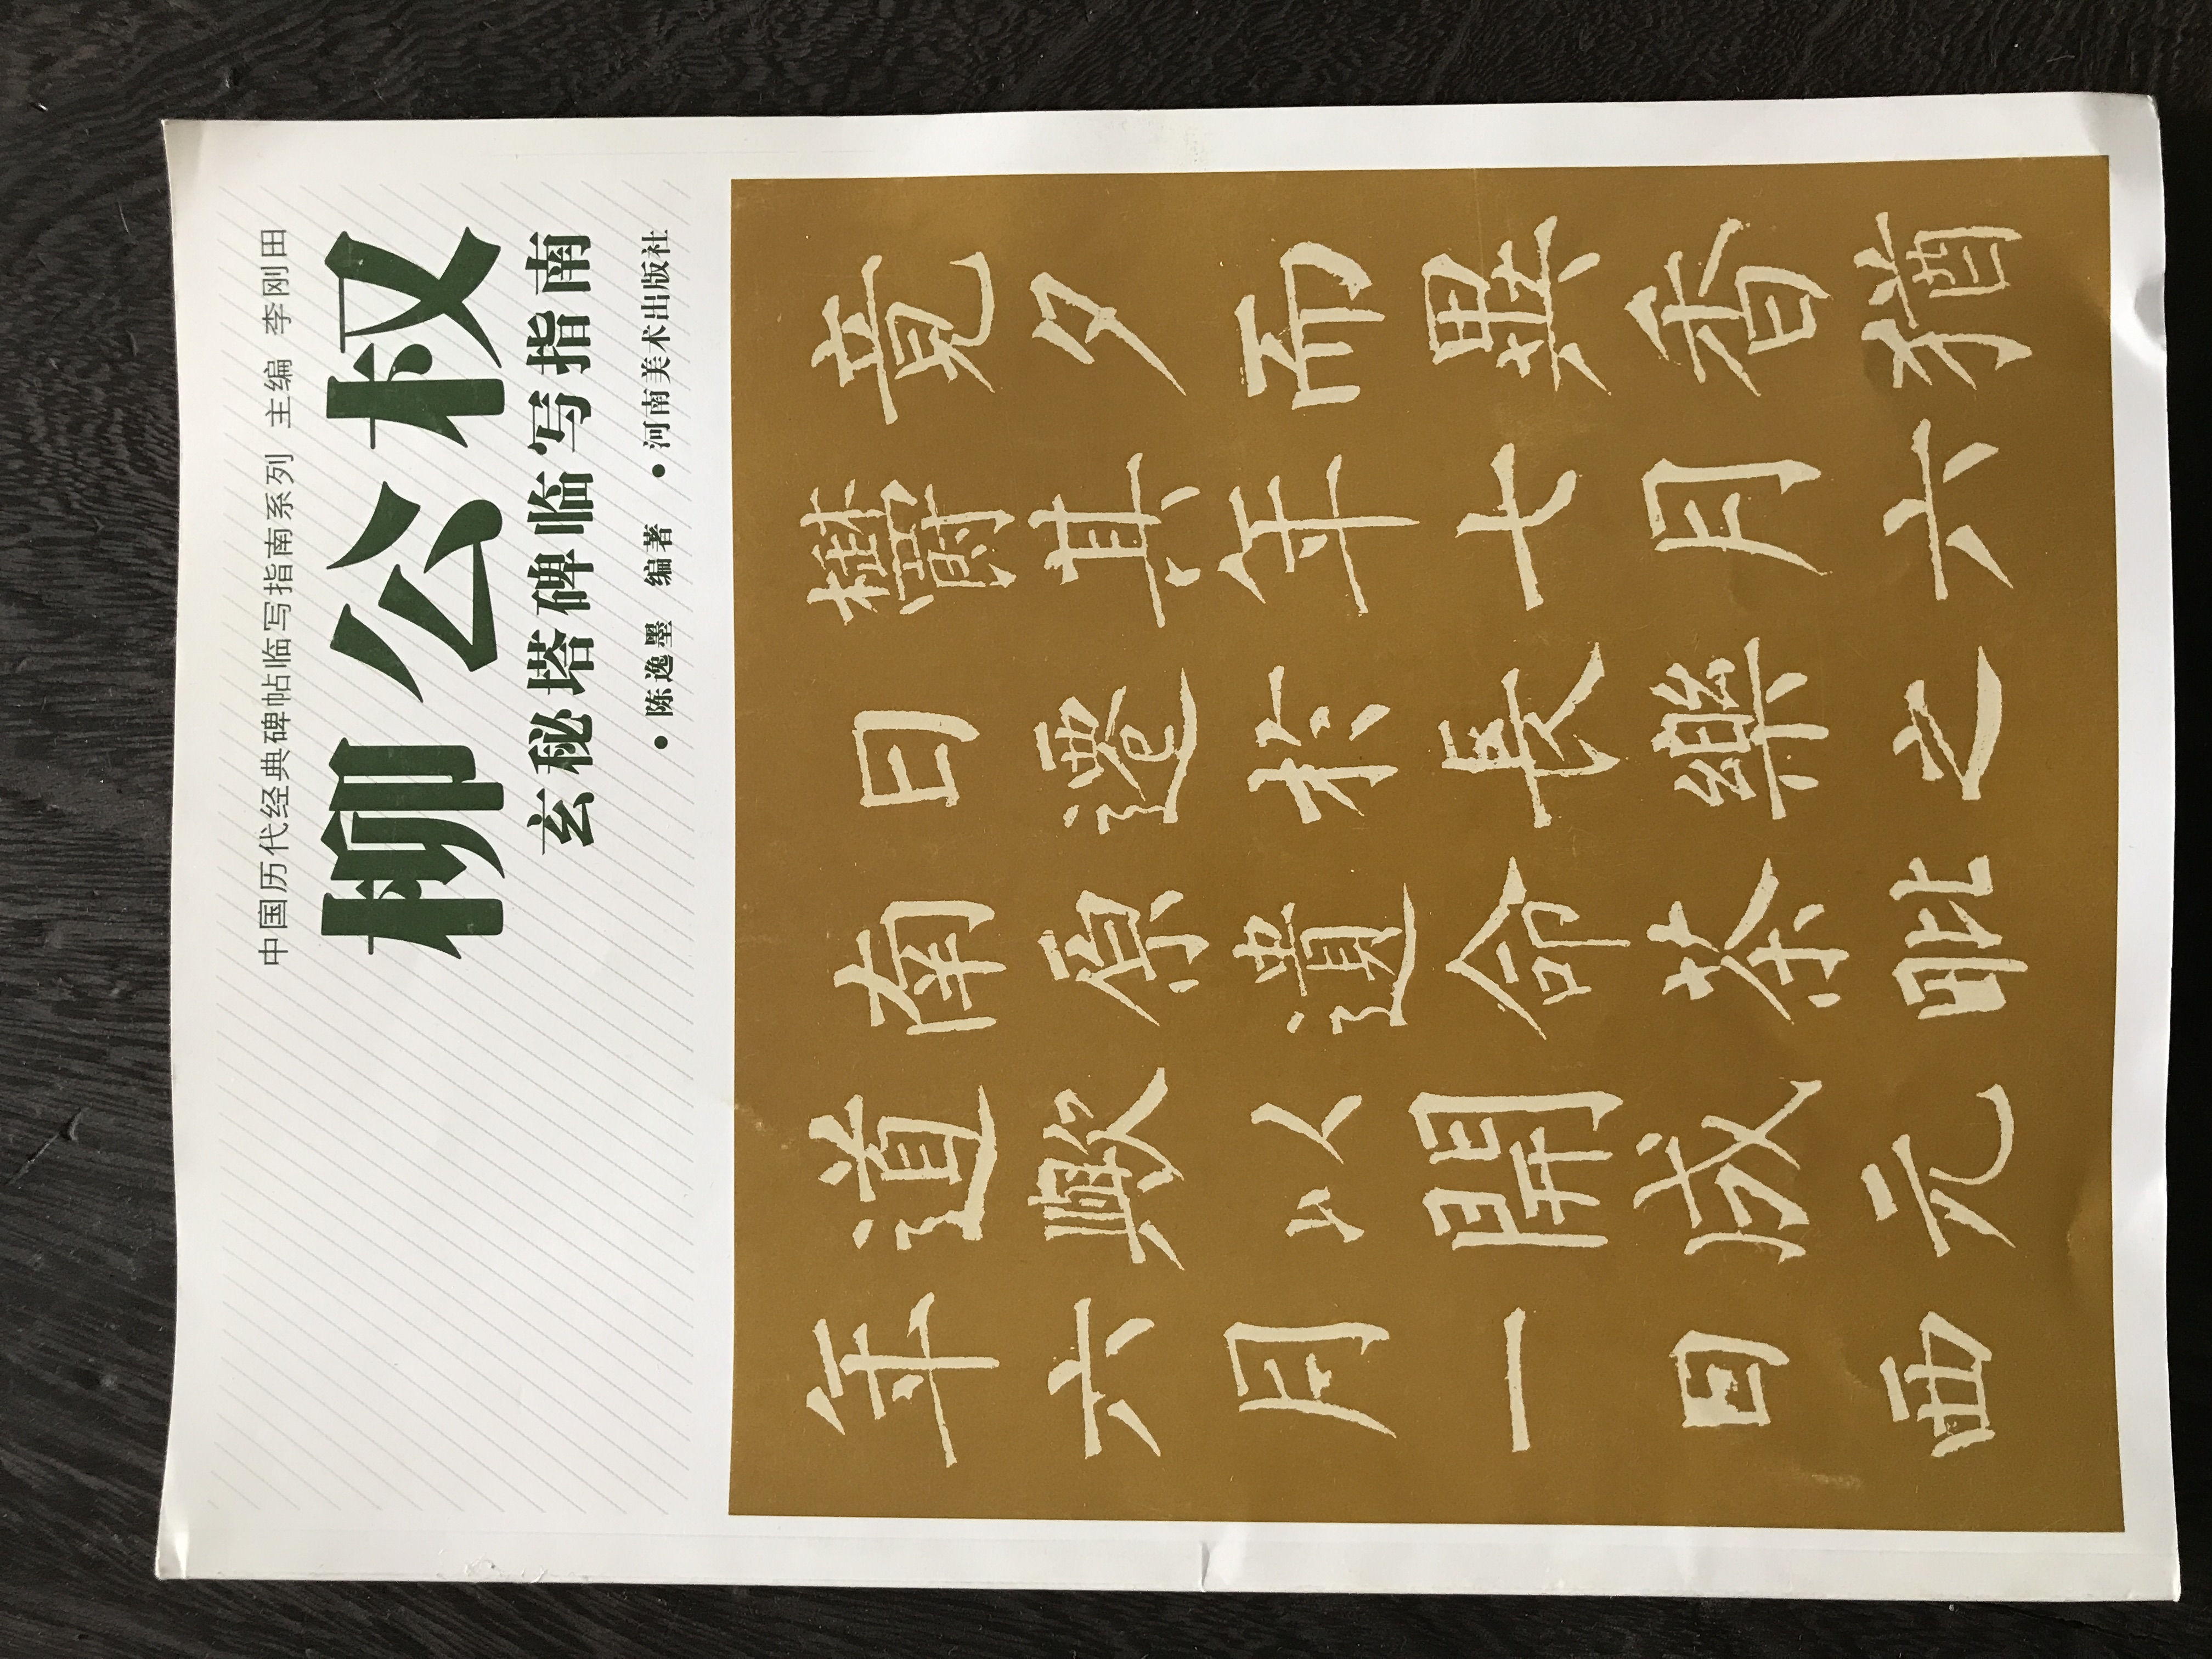 中国历代经典碑帖临写指南系列 主编 李刚田
柳公权
玄秘塔碑临写指南
•陈逸墨 编著 •河南美术出版社
竟夕而異香猶
欝其年七月六
日遷於長樂之
南原遺命荼毗
道歟以開成元
年六月一日西